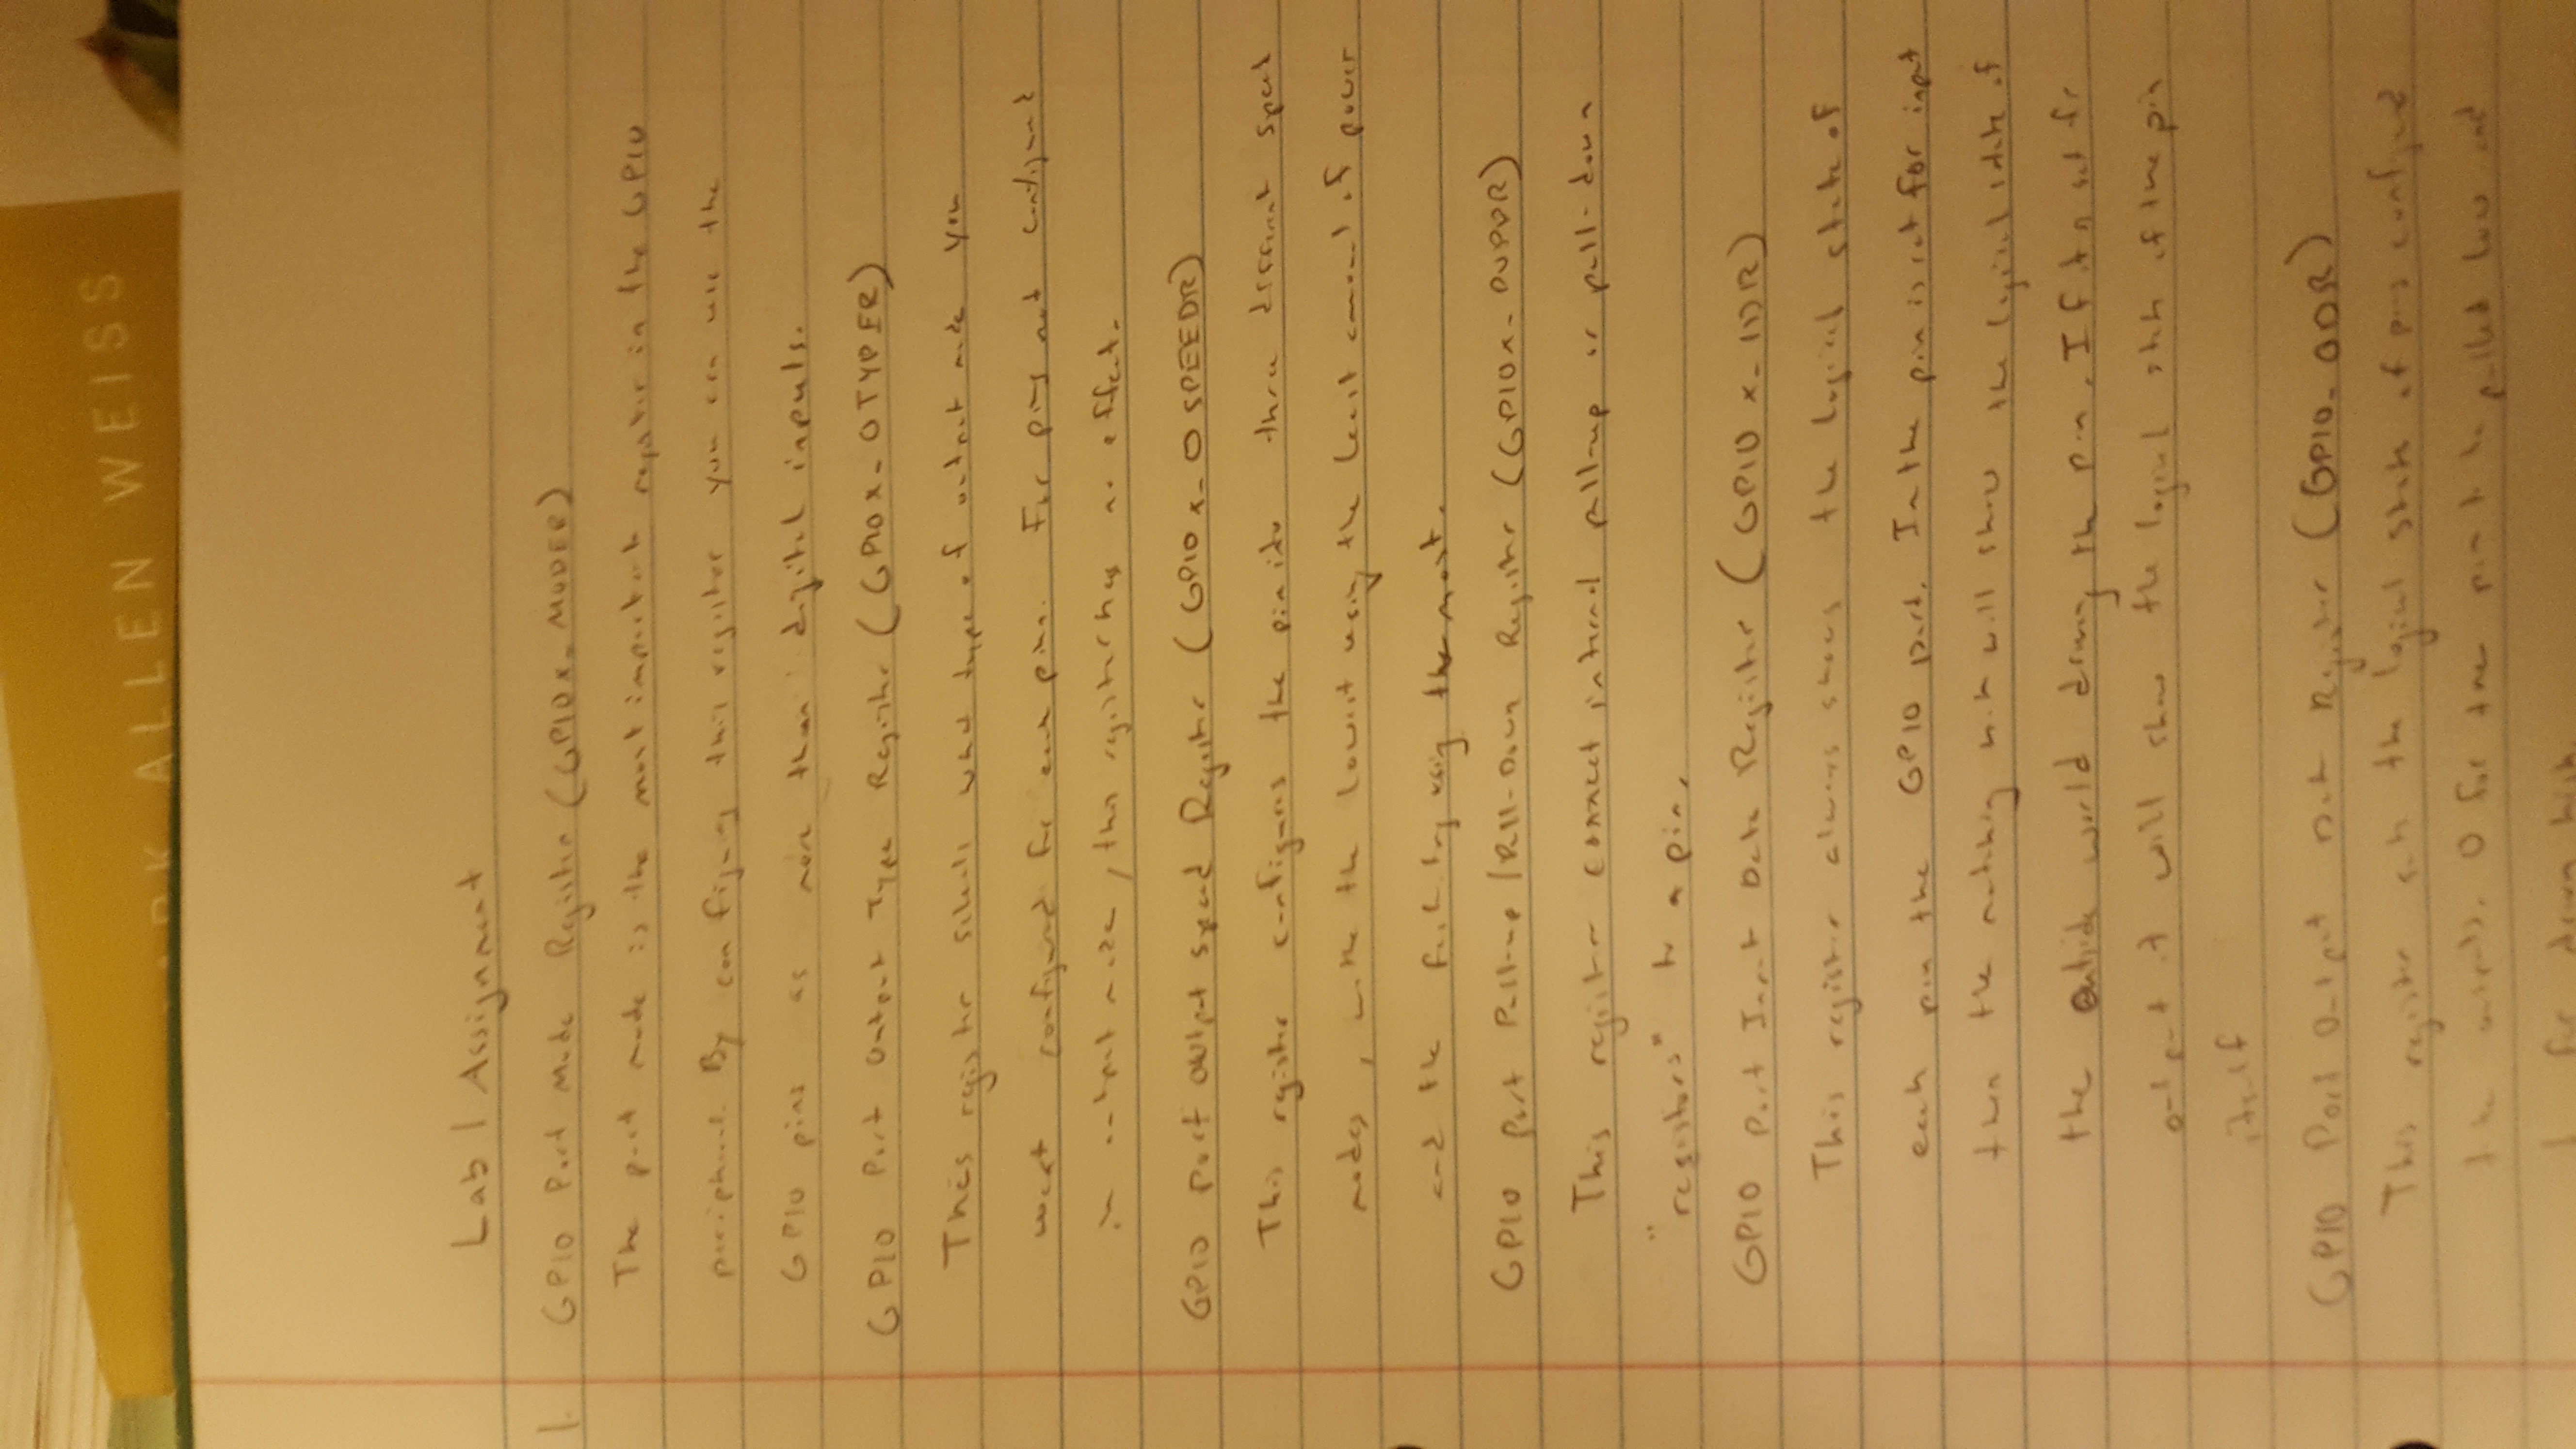 ARK ALLEN WEISS
Lab 1 Assignment
1. GPIO Port Mode Register (GPIOx_MODER)
The port mode is the most important register in the GPIO
peripheral. By configuring this register you can use the
GPIO pins as more than digital inputs.
GPIO Port Output Type Register (GPIOx_OTYPER)
This register selects what type of output mode you
want configured for each pin. For pins not configured
in output mode, this register has no effect.
GPIO Port Output Speed Register (GPIOx_OSPEEDR)
This register configures the pin into three different speed
modes, with the lowest using the least amount of power
and the using the most.
GPIO Port Pull-up/Pull-Down Register (GPIOx_PUPDR)
This register connect internal pull-up or pull-down
"registors" to a pin.
GPIO Port Input Data Register (GPIOx_IDR)
This register always shows the logical state of
each pin the GPIO port. In the pin is set for input
then the matching will show the logical state of
the outside world driving the pin. If set for
output it will show the logical state of the pin
itself
GPIO Port Output Data Register (GPIO_ODR)
This register sets the logical state of pins configured
to be outputs. 0 for the pin to be pulled low and
1 for driven high.